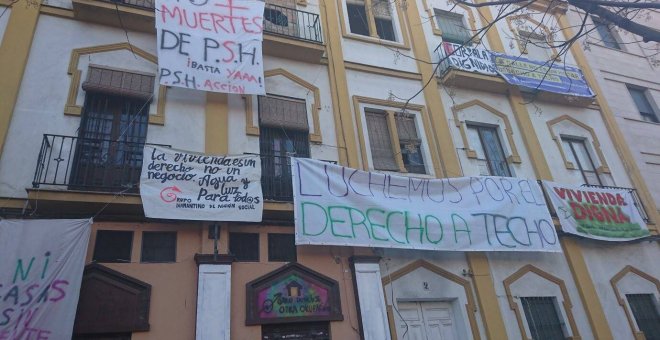 MUERTES
DE P.S.H.
¡BASTA YAAA!
P.S.H. ACCION
La vivienda es un
derecho no un
negocio. Agua y
Luz Para tod@s
GRUPO
DIAMANTINO DE ACCIÓN SOCIAL
LUCHEMOS POR EL
DERECHO A TECHO
VIVIENDA
DIGNA
NI
CASAS
SIN
GENTE
OTRA